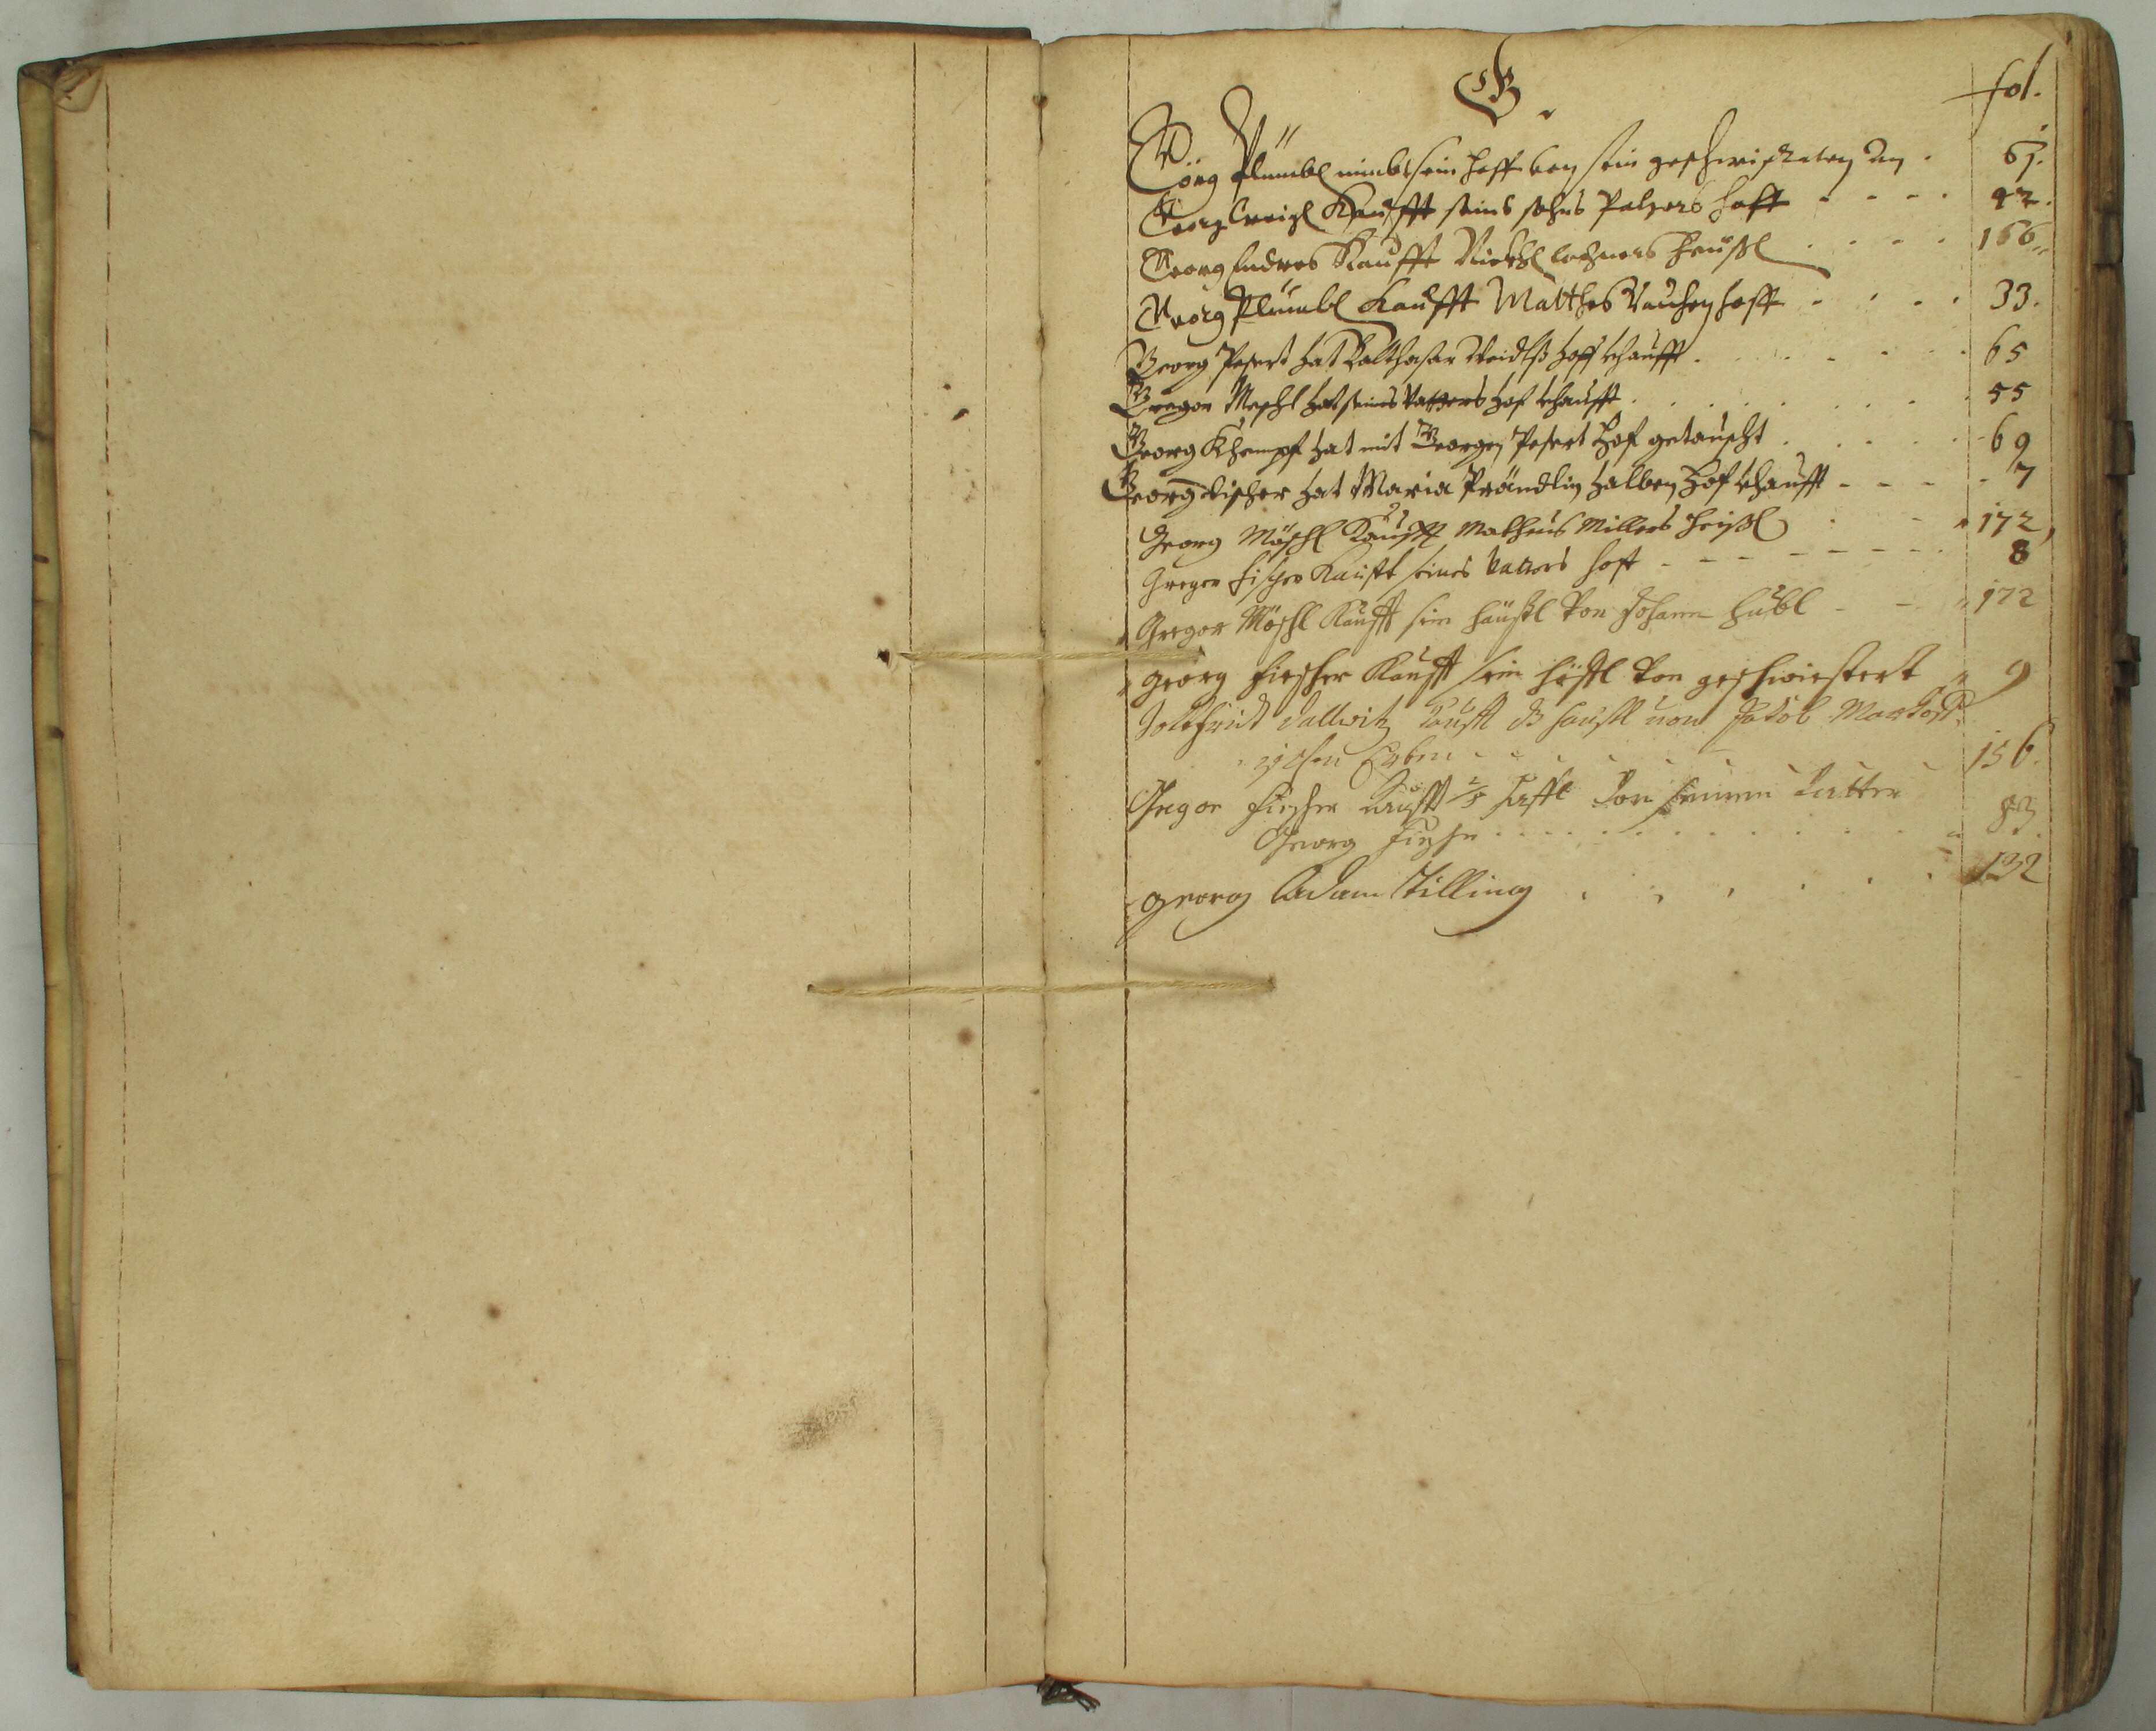 G.
fol.
Görg Plümbl nimbt sein hoff von sein geschwistraten an . 61.
Georg Kaufft seins sohns hoff . . . . 42.
Georg Endres Kaufft Nickhl lochners heüßl . . . . 166
Georg Plümbl Kaufft Matthes hoff . . . . 33.
Georg Pesert hat Balthasar Weidlß hoff khaufft . . . . . . . 65
Gregor Meschl hat seines Vatters hof khaufft . . . . . . . . 55
Georg Khempf hat mit Georgen Pesert hof getauscht . . . . . 69
Georg Fischer hat Maria Prändlin halben hof khaufft - - - - 7
Georg Möschl Kaufft Matheus Millers heißl . - - 172
Gregor Fischer Kaufft seines Vatters hoff - - - - - - - - 8
Gregor Möschl Kaufft sein häußl Von Johann Hübl - - 172
Georg Fischer Kaufft sein höffl Von geschwiestert 9
Gottfriedt Kaufft häußl von Jakob
Erben . . . . . . . 156.
Gregor Fischer Kaufft 2/3 höffl Von seinem Vatter
Georg Fischer . . . . . . . . . . 83.
Georg Adam Tilling . . . . . . 132